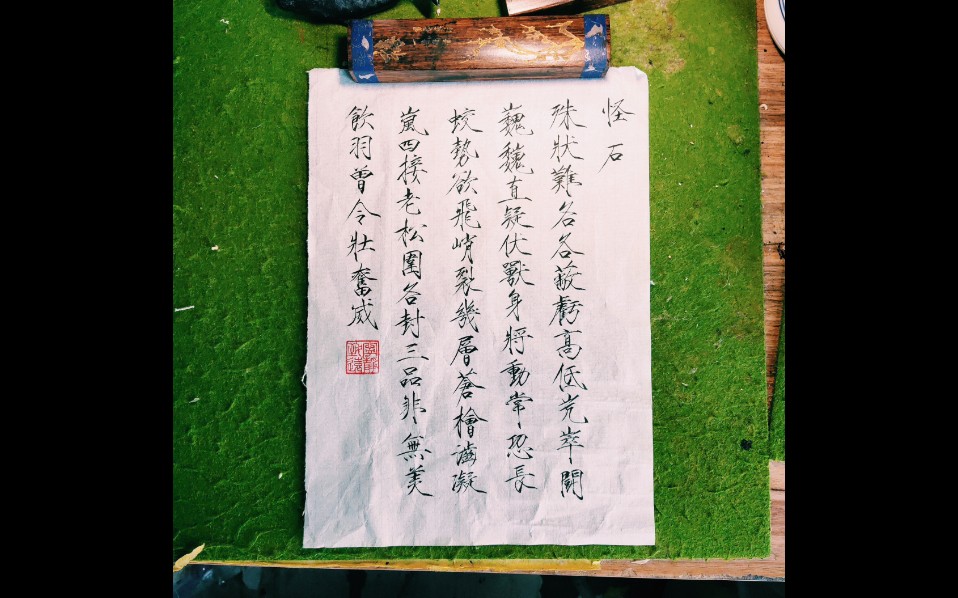 怪石
殊狀難名各蔽虧高低岌崒鬪
巍巍直疑伏獸身將動常恐長
蛟勢欲飛峭裂幾層蒼檜澁凝
嵐四接老松圍名封三品非無美
飲羽曾令壯奮威
寧靜致遠